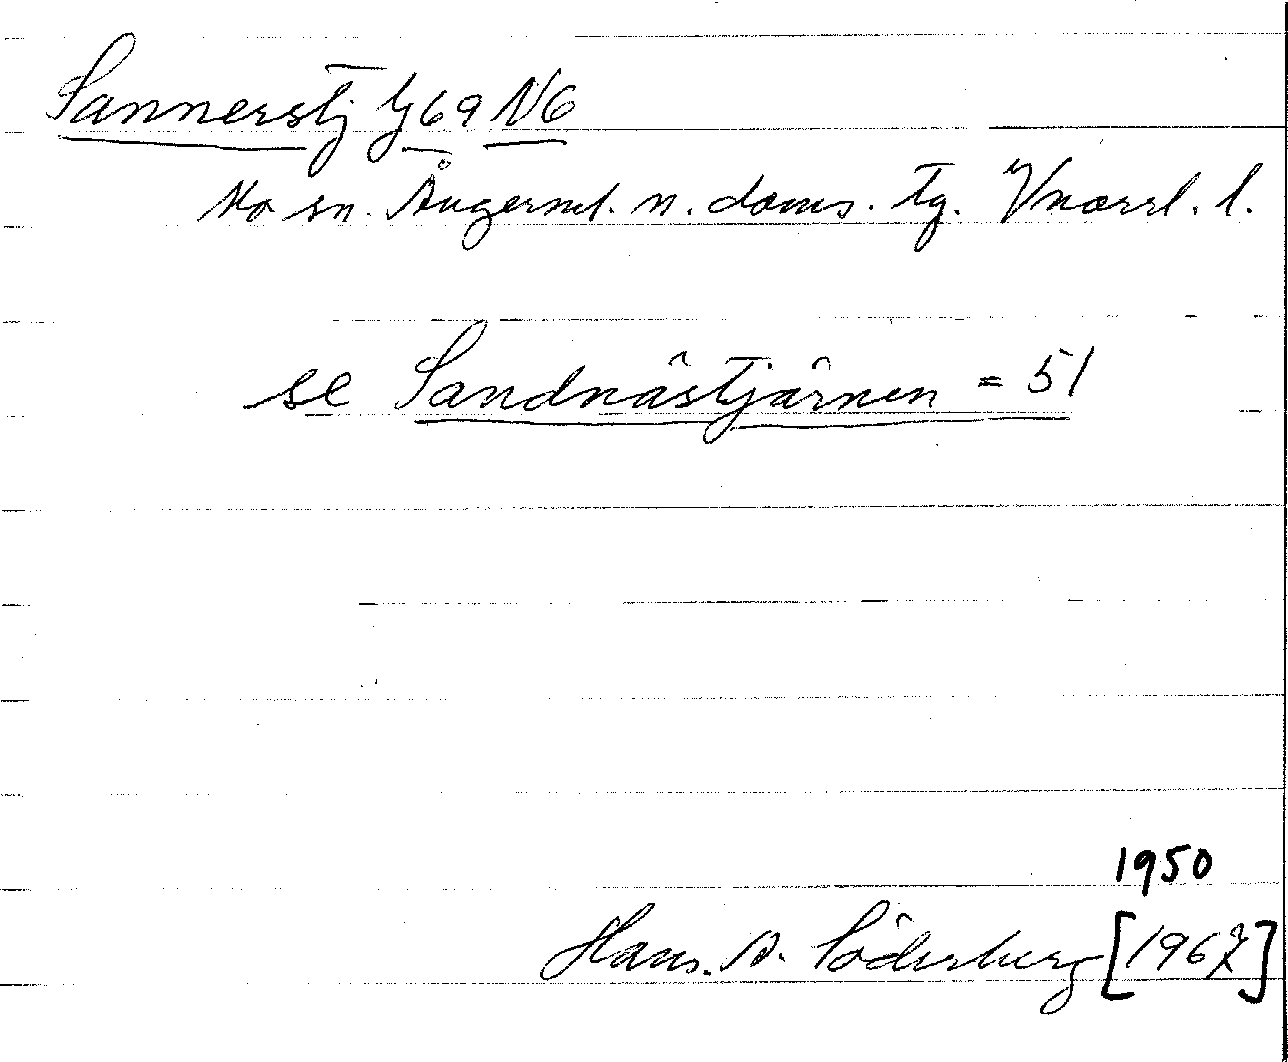 Sannerstj G69 N6
Mo sn. Ångerml. n. doms. tg. Vnorrl. l.
se Sandnästjärnen = 51
1950
Hans. A. Söderberg [1967]